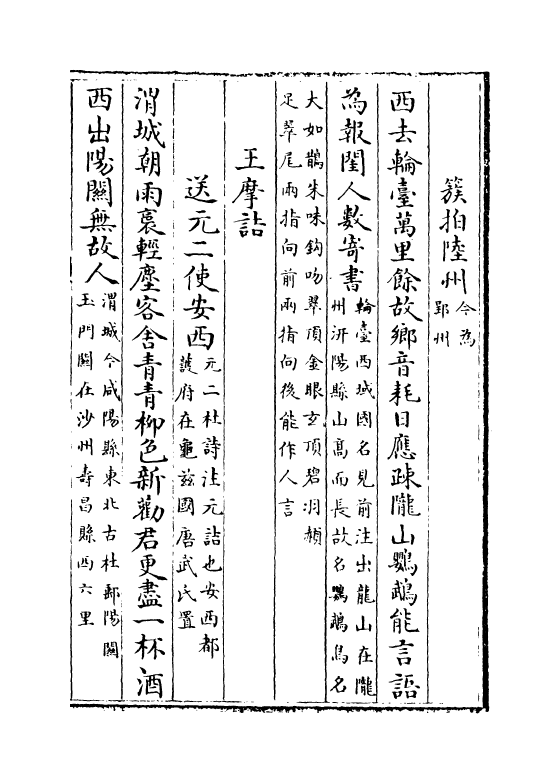 簇拍陸州今為
郢州
西去輪臺萬里餘故鄉音耗日應疎隴山鸚鵡能言語
為報閨人數寄書輪臺西域國名見前注出龍山在隴
州汧陽縣山髙而長故名鸚鵡鳥名
大如鵲朱咮鈎吻翠頂金眼玄頂碧羽頳
足翠尾兩指向前兩指向後能作人言
王摩詰
送元二使安西元二杜詩注元詰也安西都
護府在龜兹國唐武氏置
渭城朝雨裛輕塵客舍青青柳色新勸君更盡一杯酒
西出陽闗無故人渭城今咸陽縣東北古杜郵陽闗
玉門闗在沙州壽昌縣西六里